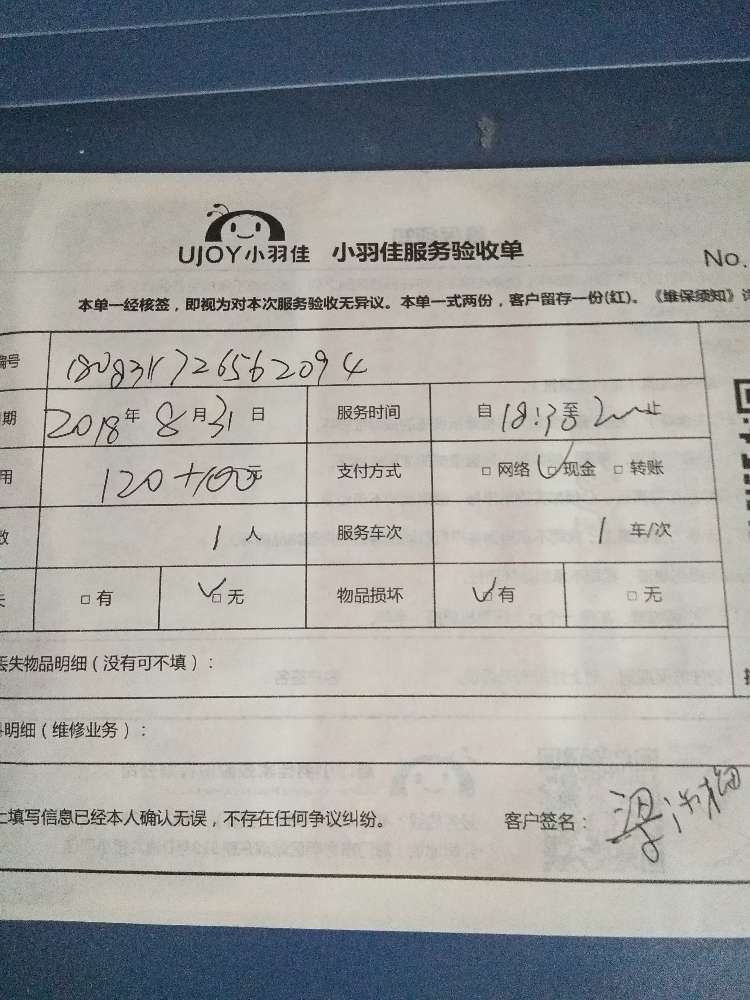 UJOY小羽佳 小羽佳服务验收单
No.
本单一经核签，即视为对本次服务验收无异议。本单一式两份，客户留存一份(红)。《维保须知》
编号 1808311726562094
期 2018年8月31日 服务时间 自18:30至 止
用 120+100元 支付方式 □网络 ☑现金 □转账
数 1人 服务车次 1车/次
失 □有 ☑无 物品损坏 ☑有 □无
丢失物品明细（没有可不填）：
料明细（维修业务）：
上填写信息已经本人确认无误，不存在任何争议纠纷。 客户签名：梁